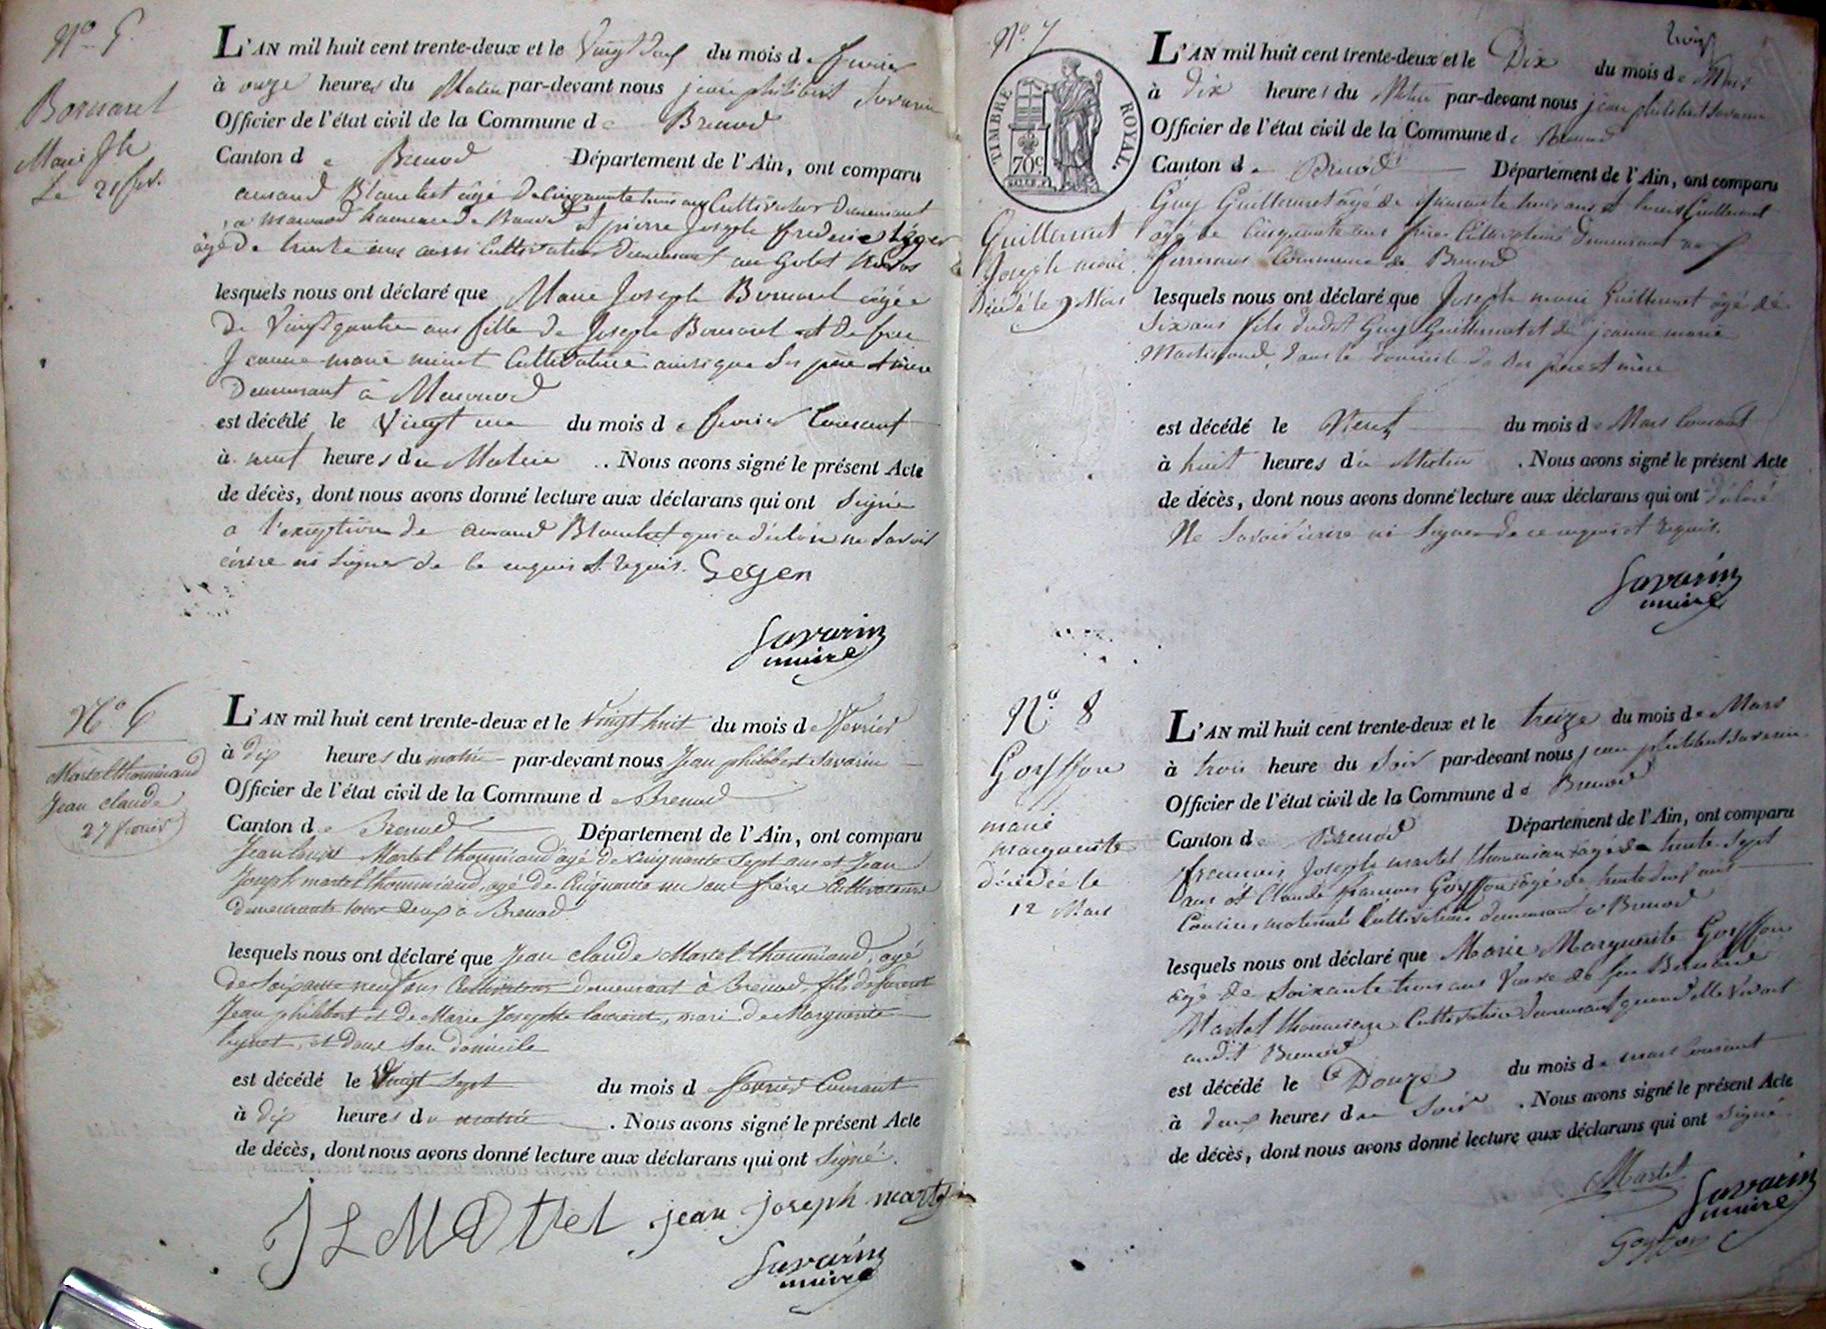 No 5.
Bornarel
Marie Jh
Le 21 fev.
L'AN mil huit cent trente-deux et le Vingt deux du mois de fevrier
à onze heures du Matin par-devant nous jean philibert Savarin
Officier de l'état civil de la Commune de Brenod
Canton de Brenod Département de l'Ain, ont comparu
Blanchet âgé de Cinquante trois ans Cultivateur demeurant
a hameau de Brenod et pierre Joseph frederic
âgé de trente ans aussi Cultivateur demeurant au
lesquels nous ont déclaré que Marie Joseph Bornarel âgée
de Vingt quatre ans fille de Joseph Bornarel et de feue
Jeanne marie Cultivatrice ainsi que Ses père et mère
Demeurant à
est décédé le Vingt un du mois de fevrier Courant
à neuf heures du Matin . Nous avons signé le présent Acte
de décès, dont nous avons donné lecture aux déclarans qui ont Signé
a l'exception de Blanchet qui a déclaré ne Savoir
écrire ni Signer de ce enquis et requis. Gegen
Savarin
maire
No 6
Martel thouminand
Jean claude
27 fevrier
L'AN mil huit cent trente-deux et le Vingt huit du mois de Fevrier
à dix heures du matin par-devant nous Jean philibert Savarin
Officier de l'état civil de la Commune de Brenod
Canton de Brenod Département de l'Ain, ont comparu
Jean louis Martel thouminand âgé de Cinquante Sept ans et Jean
Joseph martel thouminand, âgé de Cinquante un ans frères Cultivateurs
demeurants tous deux à Brenod
lesquels nous ont déclaré que Jean claude Martel thouminand, âgé
de Soixante neuf ans Cultivateur demeurant à Brenod, fils de
Jean philibert et de Marie Josephte, mari de Marguerite
et dans Son domicile
est décédé le Vingt Sept du mois de Fevrier Courant
à dix heures du matin . Nous avons signé le présent Acte
de décès, dont nous avons donné lecture aux déclarans qui ont Signé.
J L Martel jean joseph martel
Savarin
maire
No 7
TIMBRE ROYAL
70c
Guillermet
Joseph marie
Décédé le 9 Mars
L'AN mil huit cent trente-deux et le Dix du mois de Mars
à Dix heures du Matin par-devant nous jean philibert Savarin
Officier de l'état civil de la Commune de Brenod
Canton de Brenod Département de l'Ain, ont comparu
Guy Guillermet âgé de trois ans et louis Guillermet
âgé de Cinquante ans frères Cultivateurs Demeurant au
Commune de Brenod
lesquels nous ont déclaré que Joseph marie Guillermet âgé de
Six ans fils dudit Guy Guillermet et de jeanne marie
dans le domicile de Ses père et mère
est décédé le Neuf du mois de Mars Courant
à huit heures du Matin . Nous avons signé le présent Acte
de décès, dont nous avons donné lecture aux déclarans qui ont déclaré
Ne Savoir écrire ni Signer de ce enquis et requis.
Savarin
maire
No 8
Goyffon
marie
marguerite
décédée le
12 Mars
L'AN mil huit cent trente-deux et le treize du mois de Mars
à trois heure du Soir par-devant nous jean philibert Savarin
Officier de l'état civil de la Commune de Brenod
Canton de Brenod Département de l'Ain, ont comparu
francois Joseph martel âgé de trente Sept
ans et Claude francois Goyffon âgé de trente ans
Cousins maternels Cultivateurs demeurant à Brenod
lesquels nous ont déclaré que Marie Marguerite Goyffon
âgé de Soixante trois ans Veuve de feu Bernard
Martel Cultivatrice demeurant quand elle Vivait
audit Brenod
est décédé le Douze du mois de mars Courant
à deux heures du Soir . Nous avons signé le présent Acte
de décès, dont nous avons donné lecture aux déclarans qui ont Signé
Martel
Savarin
maire
Goyffon